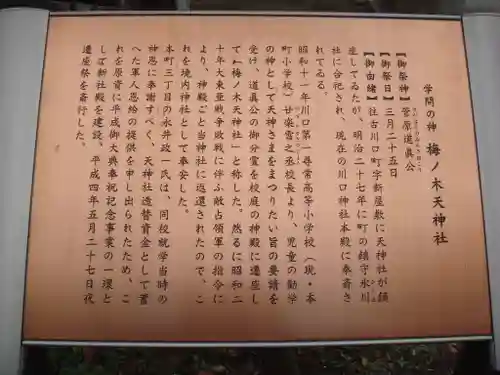 学問の神　梅ノ木天神社
【御祭神】菅原道眞公
【御祭日】三月二十五日
【御由緒】往古川口町字新屋敷に天神社が鎮
座してゐたが、明治二十七年に町の鎮守氷川
社に合祀され、現在の川口神社本殿に奉斎さ
れてゐる。
昭和十一年川口第一尋常高等小学校（現・本
町小学校）廿楽雪之丞校長より、児童の勧学
の神として天神さまをまつりたい旨の要請を
受け、道眞公の御分霊を校庭の神殿に遷座し
て「梅ノ木天神社」と称した。然るに昭和二
十年大東亜戦争敗戦に伴ふ敵占領軍の指令に
より、神殿ごと当神社に返還されたので、こ
れを境内神社として奉安した。
本町三丁目の永井政一氏は、同校就学当時の
神恩に奉謝すべく、天神社造替資金として蓄
へた軍人恩給の提供を申し出られたため、こ
れを原資に平成御大典奉祝記念事業の一環と
して新社殿を建設、平成四年五月二十七日夜
遷座祭を斎行した。